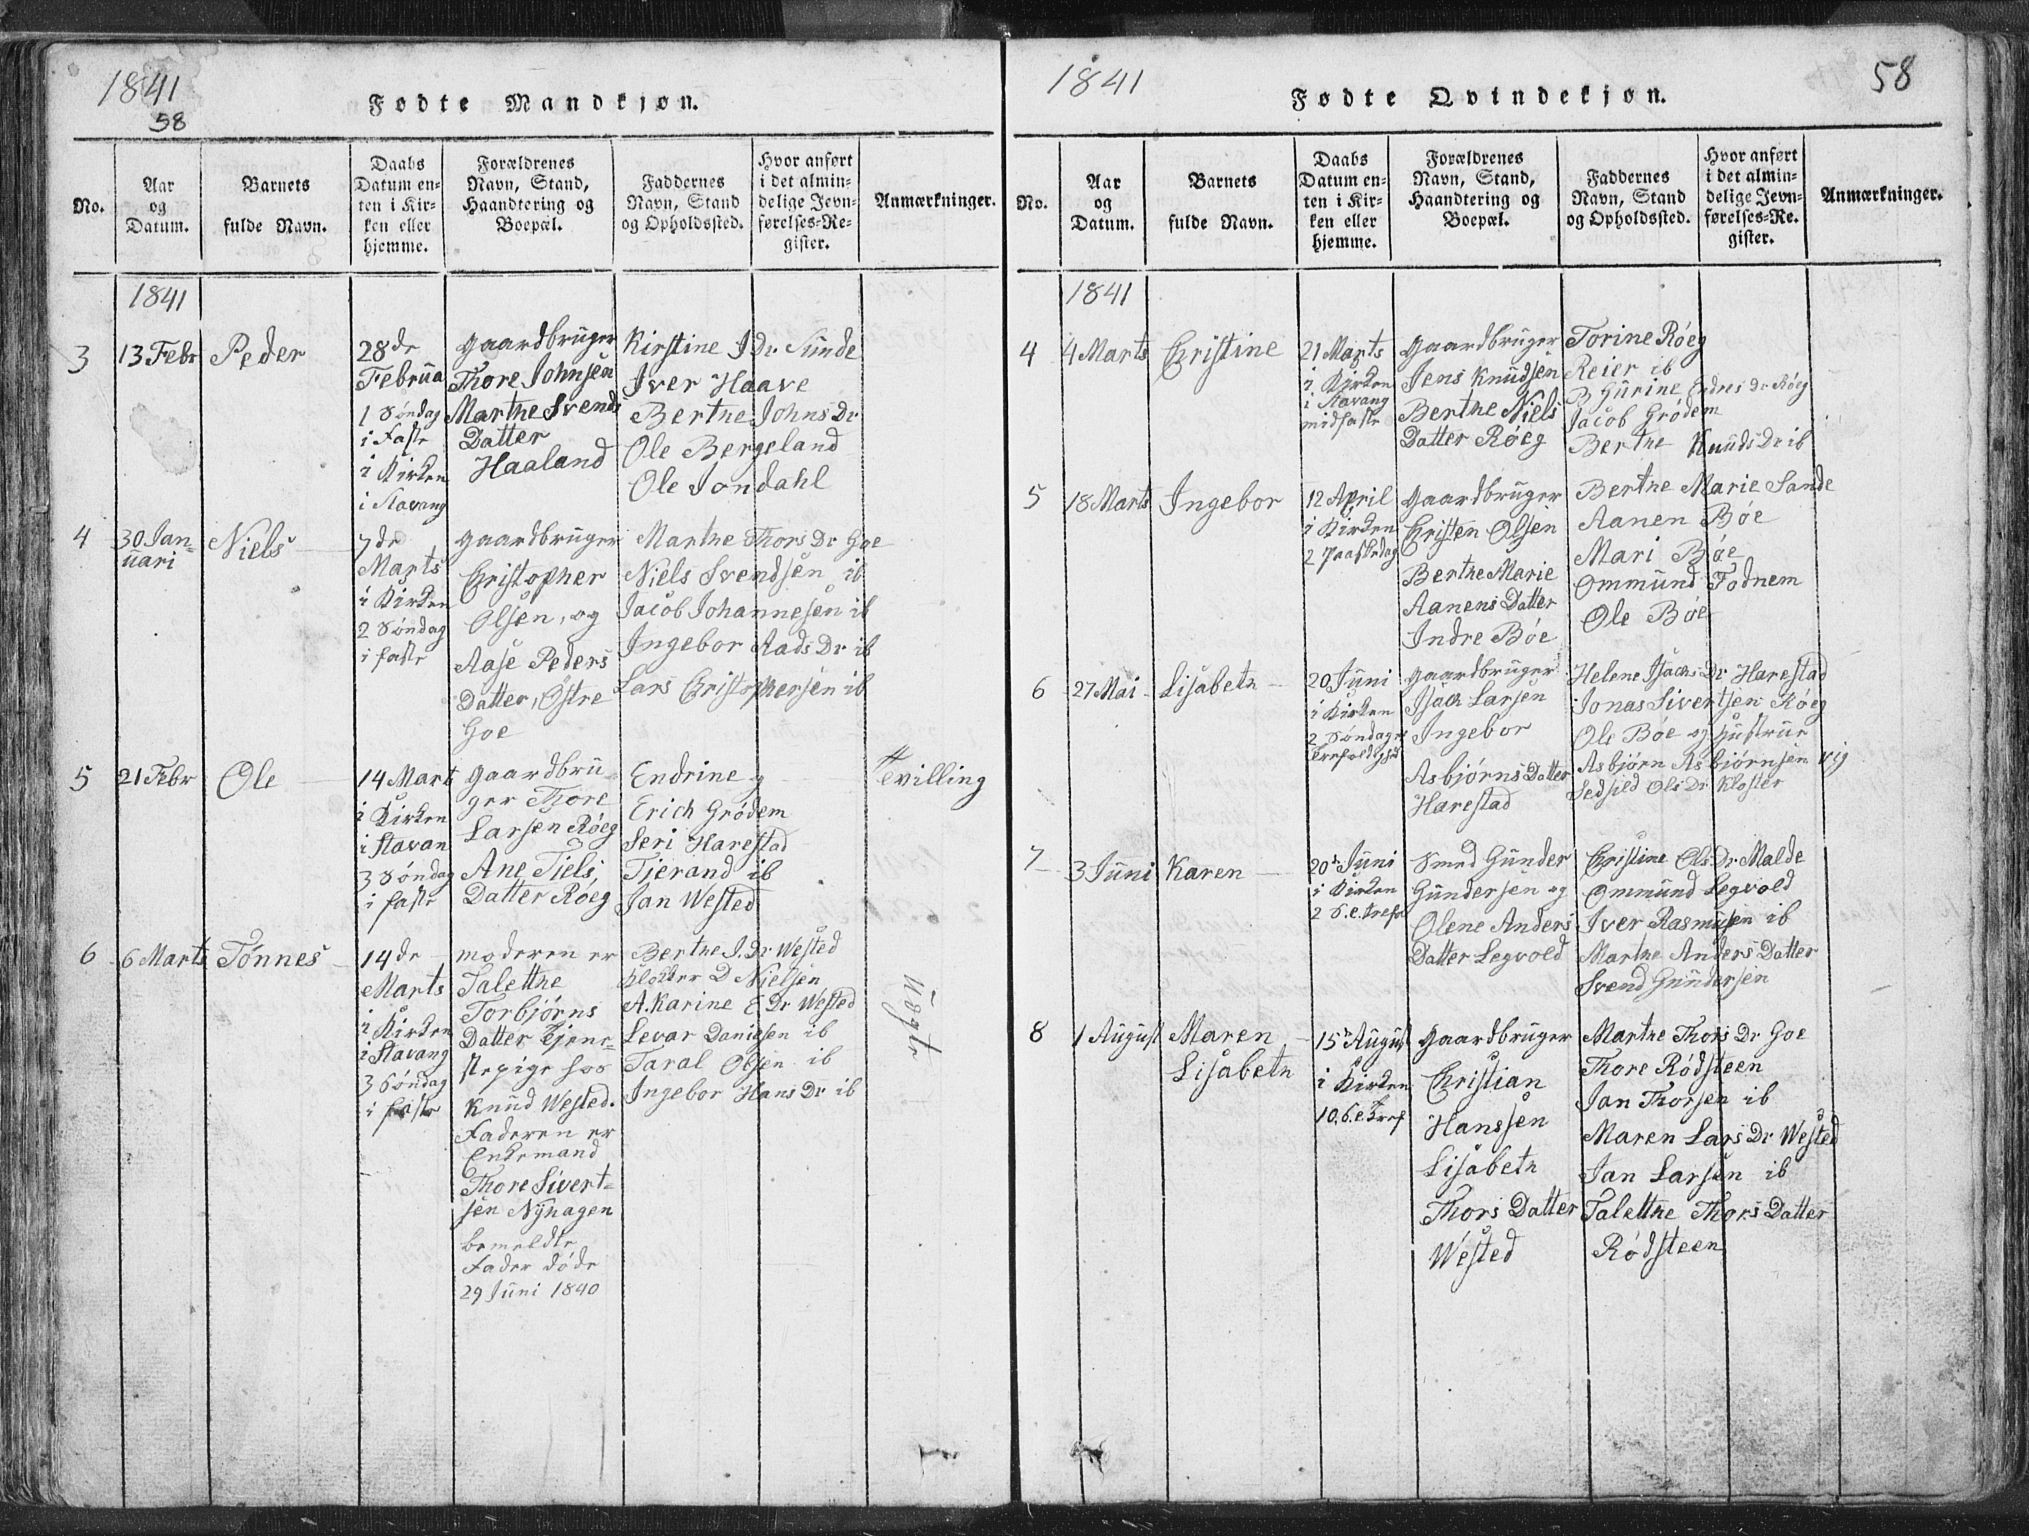 1841
58
Fødte Mandkjøn.
No.
Aar
og
Datum.
Barnets
fulde Navn.
Daabs
Datum en-
ten i Kir-
ken eller
hjemme.
Forældrenes
Navn, Stand,
Haandtering og
Boepæl.
Faddernes
Navn, Stand
og Opholdssted.
Hvor anført
i det almin-
delige Jevn-
førelses-Re-
gister.
Anmærkninger.
1841
3
13 Febr
Peder
28de
Februa
1 Søndag
i Faste
i Kirken
i Stavang
Gaardbruger
Thore Johnsen
Marthe Svends
Datter
Haaland
Kirstine J Dr Sunde
Iver Haave
Berthe Johns Dr
Ole Bergeland
Ole Jondahl
4
30 Jan-
uari
Niels
7de
Marts
i Kirken
2 Søndag
i faste
Gaardbruger
Christopher
Olsen, og
Aase Peders
Datter, Østre
Goe
Marthe Thors Dr Goe
Niels Svendsen ib
Jacob Johannesen ib
Ingebor Aads Dr ib
Lars Christophersen ib
5
21 Febr
Ole
14 Mart
i Kirken
i Stavan
3 Søndag
i faste
Gaardbru
ger Thore
Larsen Røeg
Ane Tiels
Datter Røeg
Endrine g
Erich Grødem
Seri Harestad
Tjerand ib
Jan Wested
Tvilling
6
6 Marts
Tønnes
14de
Marts
i Kirken
i Stavang
3 Søndag
i faste
moderen er
Talethe
Torbjørns
Datter Tjene-
stepige hos
Knud Wested.
Faderen er
Enkemand
Thore Sivert-
sen Nyhagen
bemeldte
Fader døde
29 Juni 1840
Berthe J. Dr Wested
Klokker D Nielsen
A. Karine E Dr Wested
Levar Danielsen ib
Taral Olsen ib
Ingebor Hans Dr ib
Uægte
1841
58
Fødte Qvindekjøn.
No.
Aar
og
Datum.
Barnets
fulde Navn.
Daabs
Datum en-
ten i Kir-
ken eller
hjemme.
Forældrenes
Navn, Stand,
Haandtering og
Boepæl.
Faddernes
Navn, Stand
og Opholdssted.
Hvor anført
i det almin-
delige Jevn-
førelses-Re-
gister.
Anmærkninger.
1841
4
4 Marts
Christine
21 Marts
i Kirken
i Stavang
midfaste
Gaardbruger
Jens Knudsen
Berthe Niels
Datter Røeg
Torine Røeg
Reier ib
B Gurine Endres Dr Røeg
Jacob Grødem
Berthe Knuds Dr ib
5
18 Marts
Ingebor
12 April
i Kirken
2 Paaskedag
Gaardbruger
Christen Olsen
Berthe Marie
Aanens Datter
Indre Bøe
Berthe Marie Sande
Aanen Bøe
Mari Bøe
Ommund Fodnem
Ole Bøe
6
27 Mai
Lisabeth
20 Juni
i Kirken
2 Søndag e
Trefoldighed
Gaardbruger
Isach Larsen
Ingebor
Asbjørns Datter
Harestad
Helene Isachs Dr Harestad
Jonas Sivertsen Røeg
Ole Bøe og Hustrue
Asbjørn Asbjørnsen vig
Sedsild Ols Dr Kloster
7
3 Juni
Karen
20 Juni
i Kirken
2 S. e. trefo
Smed Gunder
Gundersen og
Olene Anders
Datter Legvold
Christine Ols Dr Malde
Ommund Legvold
Iver Rasmusen ib
Marthe Anders Datter
Svend Gundersen
8
1 August
Maren
Lisabeth
15 August
i Kirken
10. S. e Tref
Gaardbruger
Christian
Hanssen
Lisabeth
Thors Datter
Wested
Marthe Thors Dr Goe
Thore Rødsteen
Jan Thorsen ib
Maren Lars Dr Wested
Jan Larsen ib
Talethe Thors Datter
Rødsteen